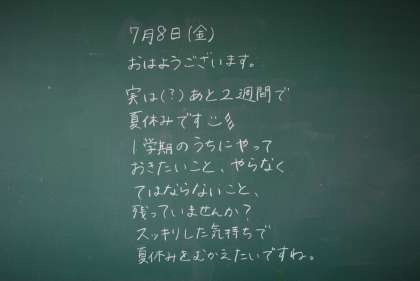 7月8日(金)
おはようございます。
実は(?)あと2週間で
夏休みです
1学期のうちにやって
おきたいこと、やらなく
てはならないこと、
残っていませんか?
スッキリした気持ちで
夏休みをむかえたいですね。